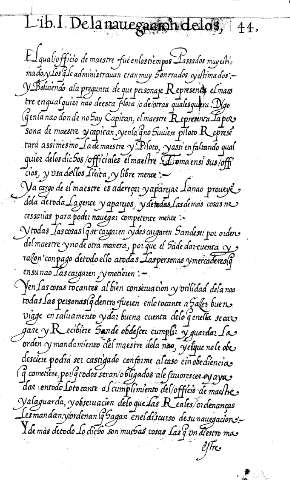 Lib. I. De la nauegacion de los, 44.
El qual officio de maestre fue en los tiempos Passados muy esti
mado, y los que le administrauan eran muy honrrados y estimados:~
Y Boluiendo a la pregunta de que personage Represente el maes
tre en qualquier nao de esta flota, o de otras qualesquiera Digo
que en la nao donde no hay Capitan, el maestre Representa La per
sona de maestre y capitan, y en la que no vuiere piloto Represen
tara assimesmo la de maestre y Piloto, y assi en faltando qual
quier de los dichos officiales el maestre
cios, y vsa dellos Licita, y libre mente:~
Ya cargo de el maestre es adereçar y aparejar La nao proueye
dola de toda La gente y aparejos, y de todas las demas cosas ne
cessarias para poder nauegar competente mente:~
Y todas Las cosas que se cargaren y descargaren han de ser por orden
del maestre y no de otra manera, por que el ha de dar cuenta y
razon con pago de todo ello a todas Las personas y mercaderes que
en su nao Las cargaren y metieren:~
Y en Las cosas tocantes al bien conseruacion y vtilidad de la nao
todas Las personas que dentro fueren en lo tocante a hazer buen
viage en saluamento y dar buena cuenta de lo que en ella se car
gare y Recibiere han de obedescer cumplir y guardar La
orden y mandamiento del maestre de la nao, y el que no le obe
desciere podra ser castigado conforme al caso e inobediencia
que cometiere, por que todos seran obligados a le fauorescer y ayu
dar en todo Lo tocante al cumplimiento del officio de maestre
y a la guarda, y obseruacion de lo que Las Reales ordenanças
Les mandan y ordenan que hagan en el discurso de su nauegacion:~
Y de mas de todo lo dicho son muchas cosas Las que vn diestro ma
estre